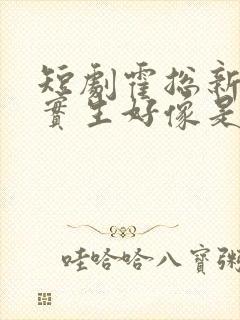 短劇霍總新
實生好像是
哇哈哈八寶粥